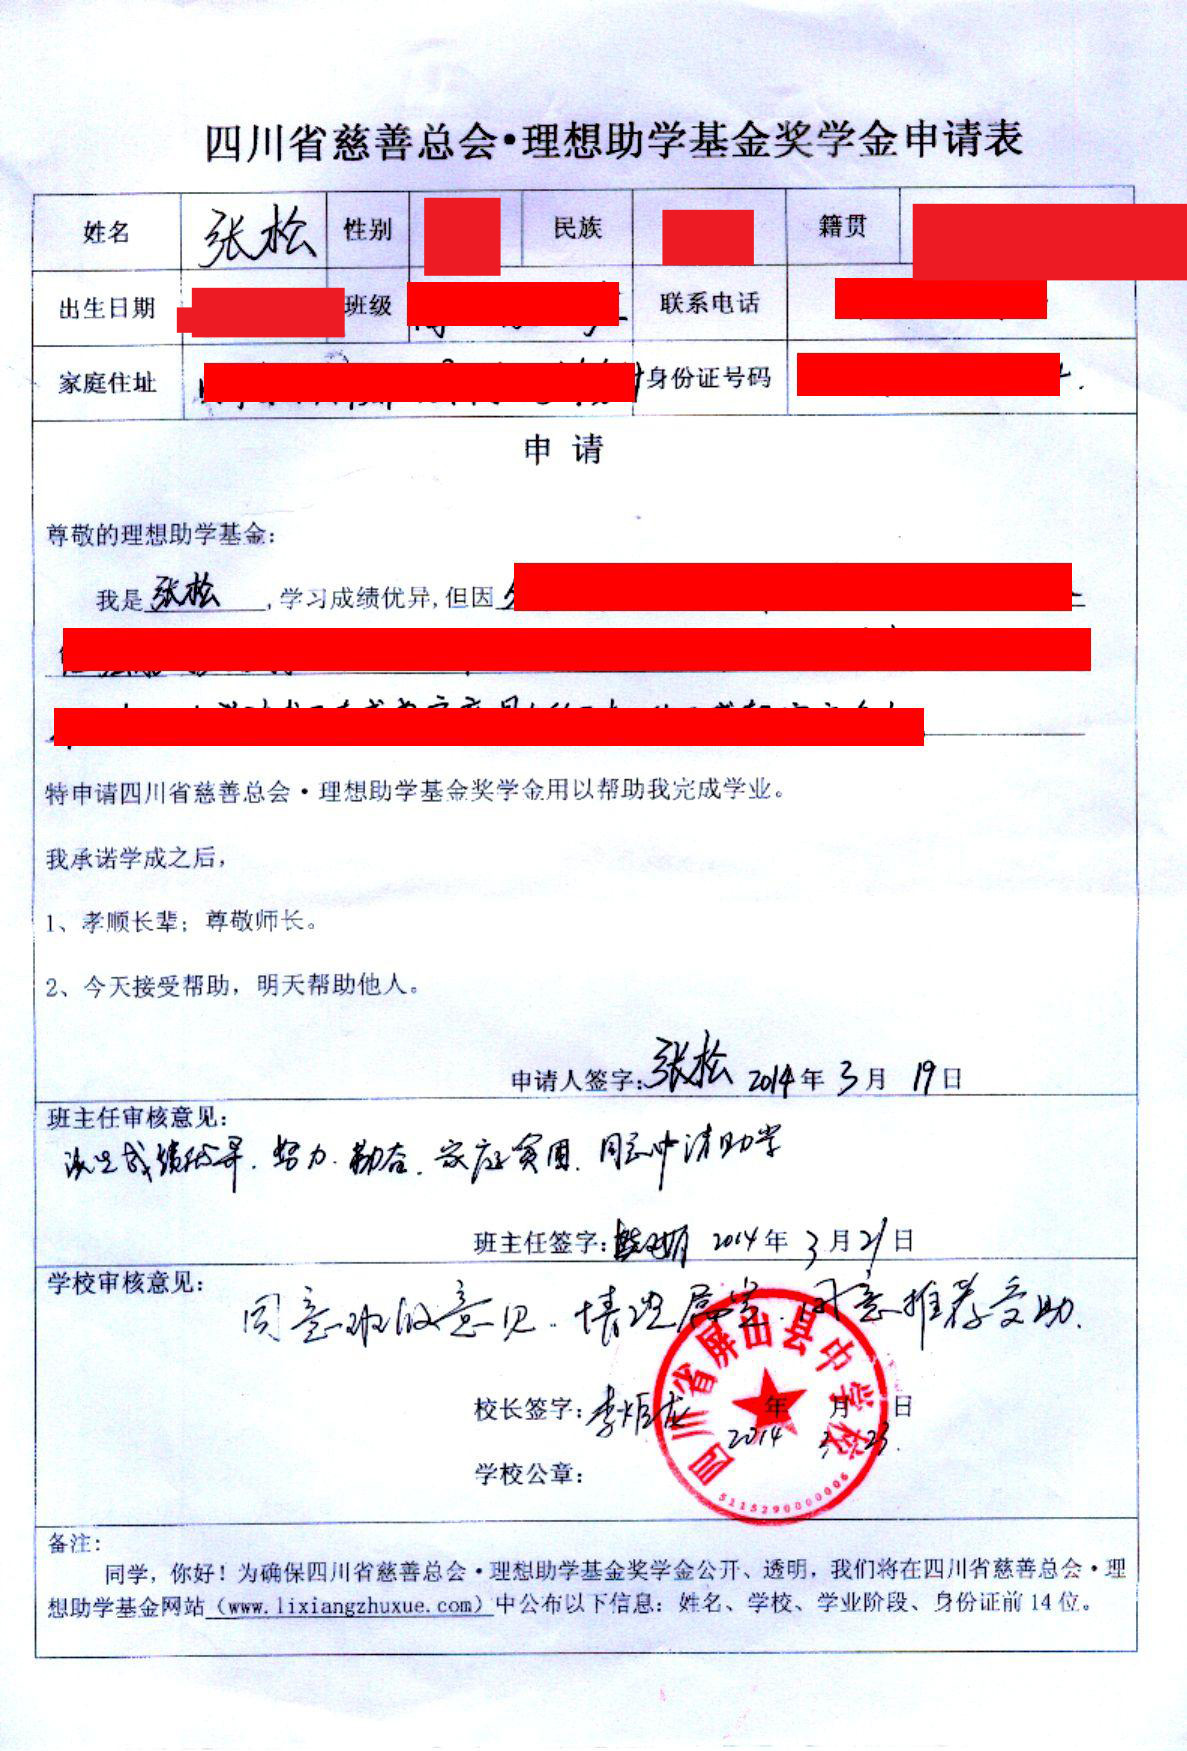 四川省慈善总会·理想助学基金奖学金申请表
姓名 张松 性别 民族 籍贯
出生日期 班级 联系电话
家庭住址 身份证号码
申 请
尊敬的理想助学基金：
我是 张松 ,学习成绩优异,但因
特申请四川省慈善总会·理想助学基金奖学金用以帮助我完成学业。
我承诺学成之后，
1、孝顺长辈；尊敬师长。
2、今天接受帮助，明天帮助他人。
申请人签字：张松 2014年 3月 19日
班主任审核意见：
该生成绩优异、努力、勤奋、家庭贫困、同意申请助学
班主任签字： 2014年 3月21日
学校审核意见：
同意班级意见、情况属实、同意推荐受助.
校长签字：李 年 月 日
2014 3. 23.
学校公章：
四川省屏山县中学校
5115290000006
备注：
同学，你好！为确保四川省慈善总会·理想助学基金奖学金公开、透明，我们将在四川省慈善总会·理
想助学基金网站（www.lixiangzhuxue.com）中公布以下信息：姓名、学校、学业阶段、身份证前14位。